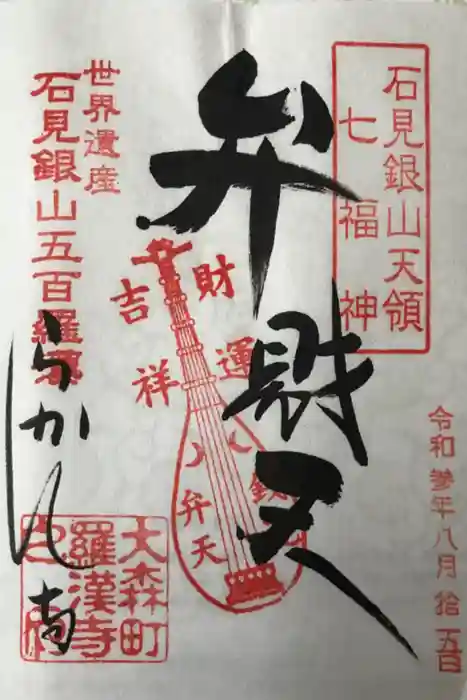 石見銀山天領
七福神
令和参年八月拾五日
弁財天
財運
吉祥
弁天
世界遺産
石見銀山五百羅漢
らかん
大森町
羅漢寺